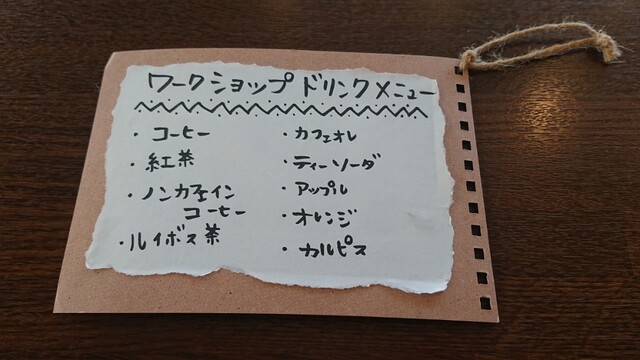 ワークショップドリンクメニュー
・コーヒー
・紅茶
・ノンカフェイン
コーヒー
・ルイボス茶
・カフェオレ
・ティーソーダ
・アップル
・オレンジ
・カルピス